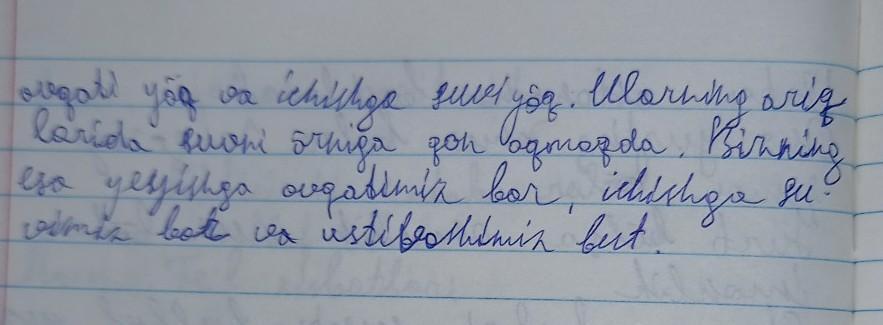 ovqati yõq va ichishga suvi yõq. Ularning ariq
larida suvni õrniga qon oqmoqda. Bizning
esa yeyishga ovqatimiz bor, ichishga su-
vimiz bor va ustiboshimiz but.